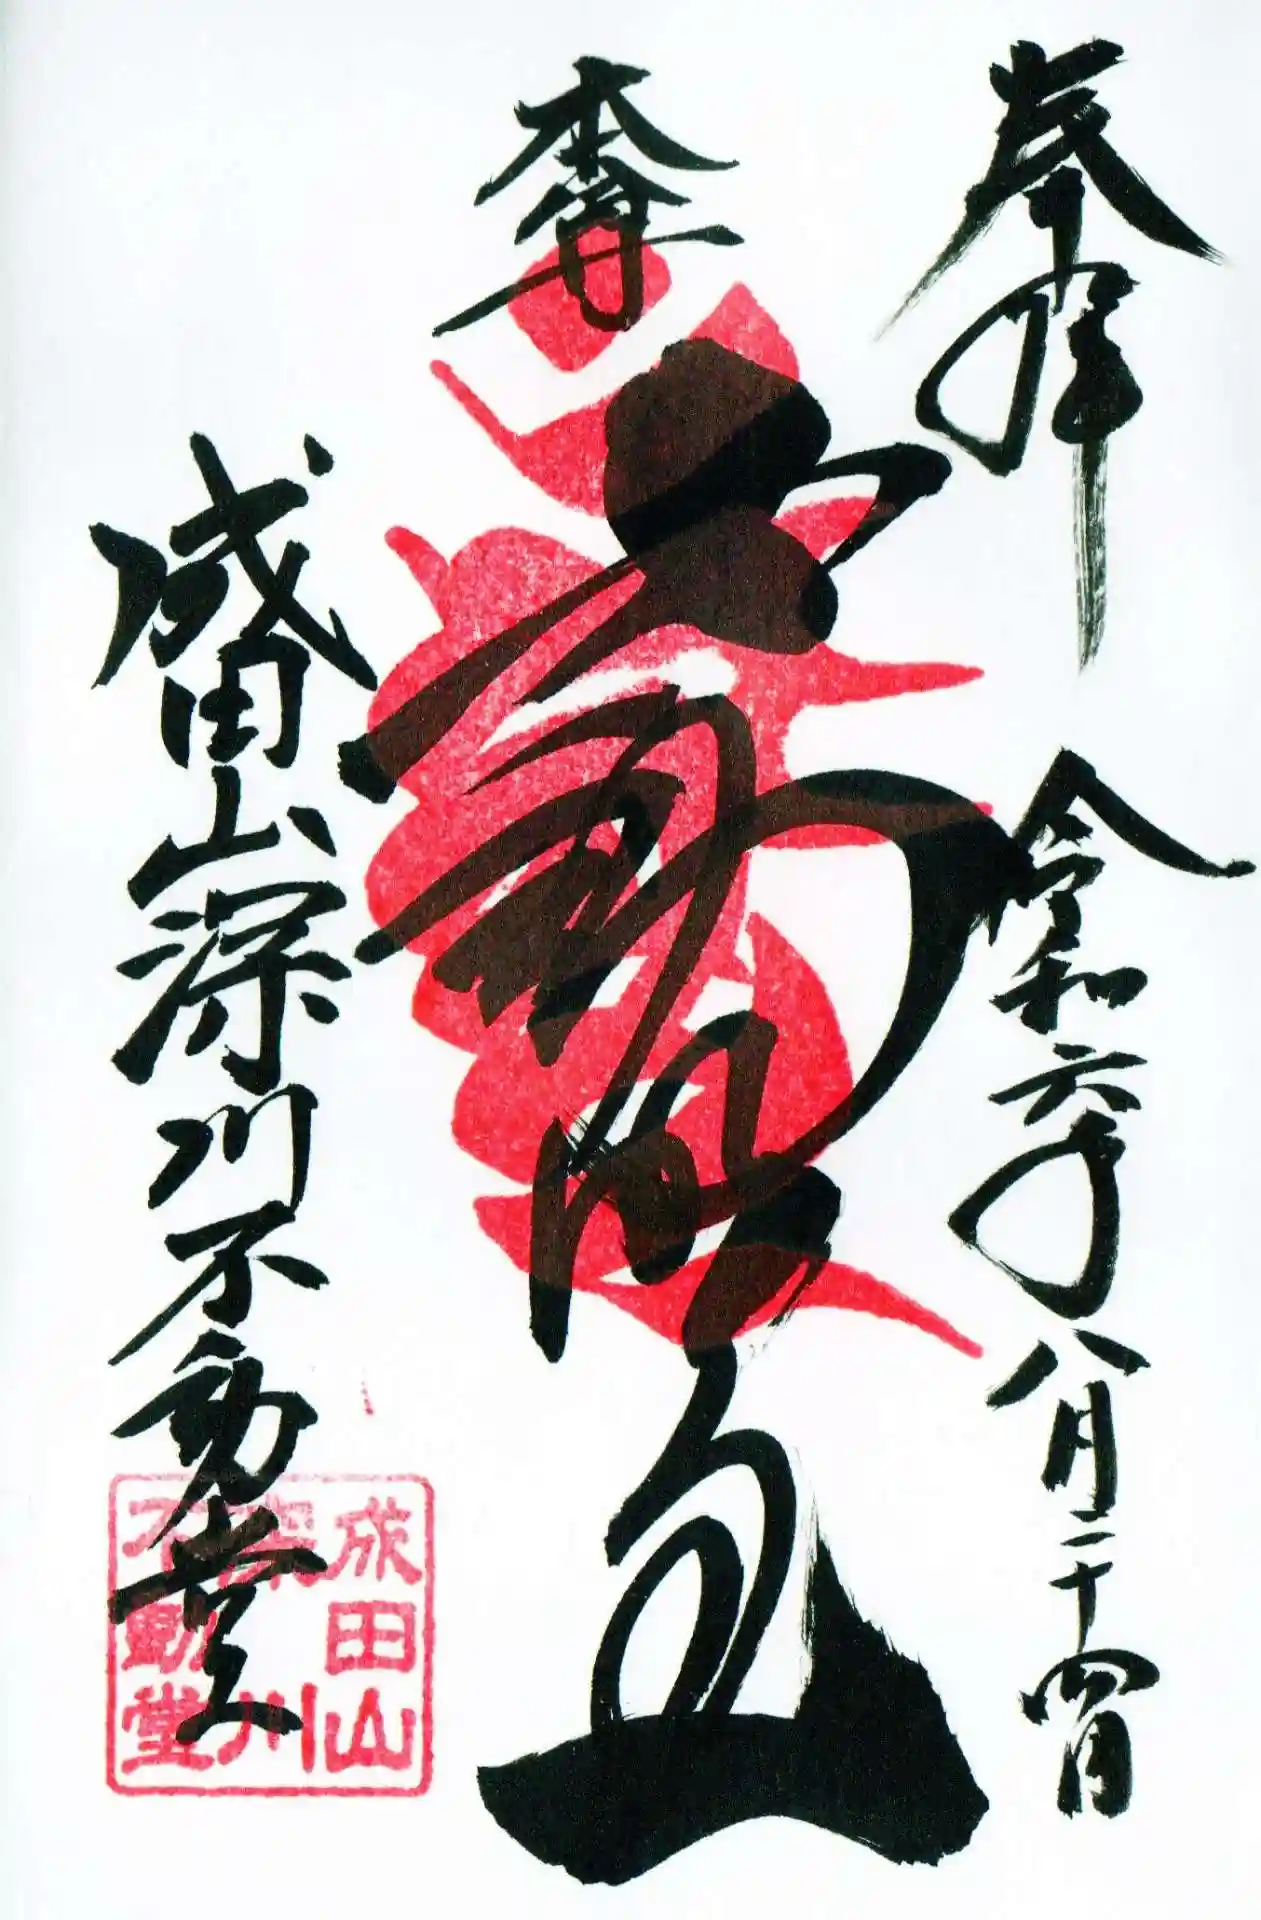 奉拝
令和六年八月二十四日
本尊
不動明王
成田山深川不動堂
成田山
深川
不動堂